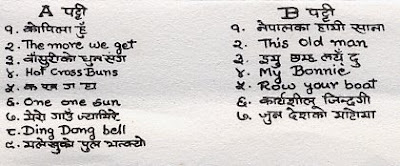 A पट्टी
१. कोपिला हुँ
२. The more we get
३. बाँसुरीको धुनसंग
४. Hot Cross Buns
५. क ख ग हा
६. One one sun
७. मेरो गाउँ ज्यामिरे
८. Ding Dong bell
९. मलेखुको पुल भत्क्यो
B पट्टी
१. नेपालका हामी साना
२. This old man
३.
४. My Bonnie
५. Row your boat
६. कार्यशील जिन्दगी
७. जुन देशको माटोमा